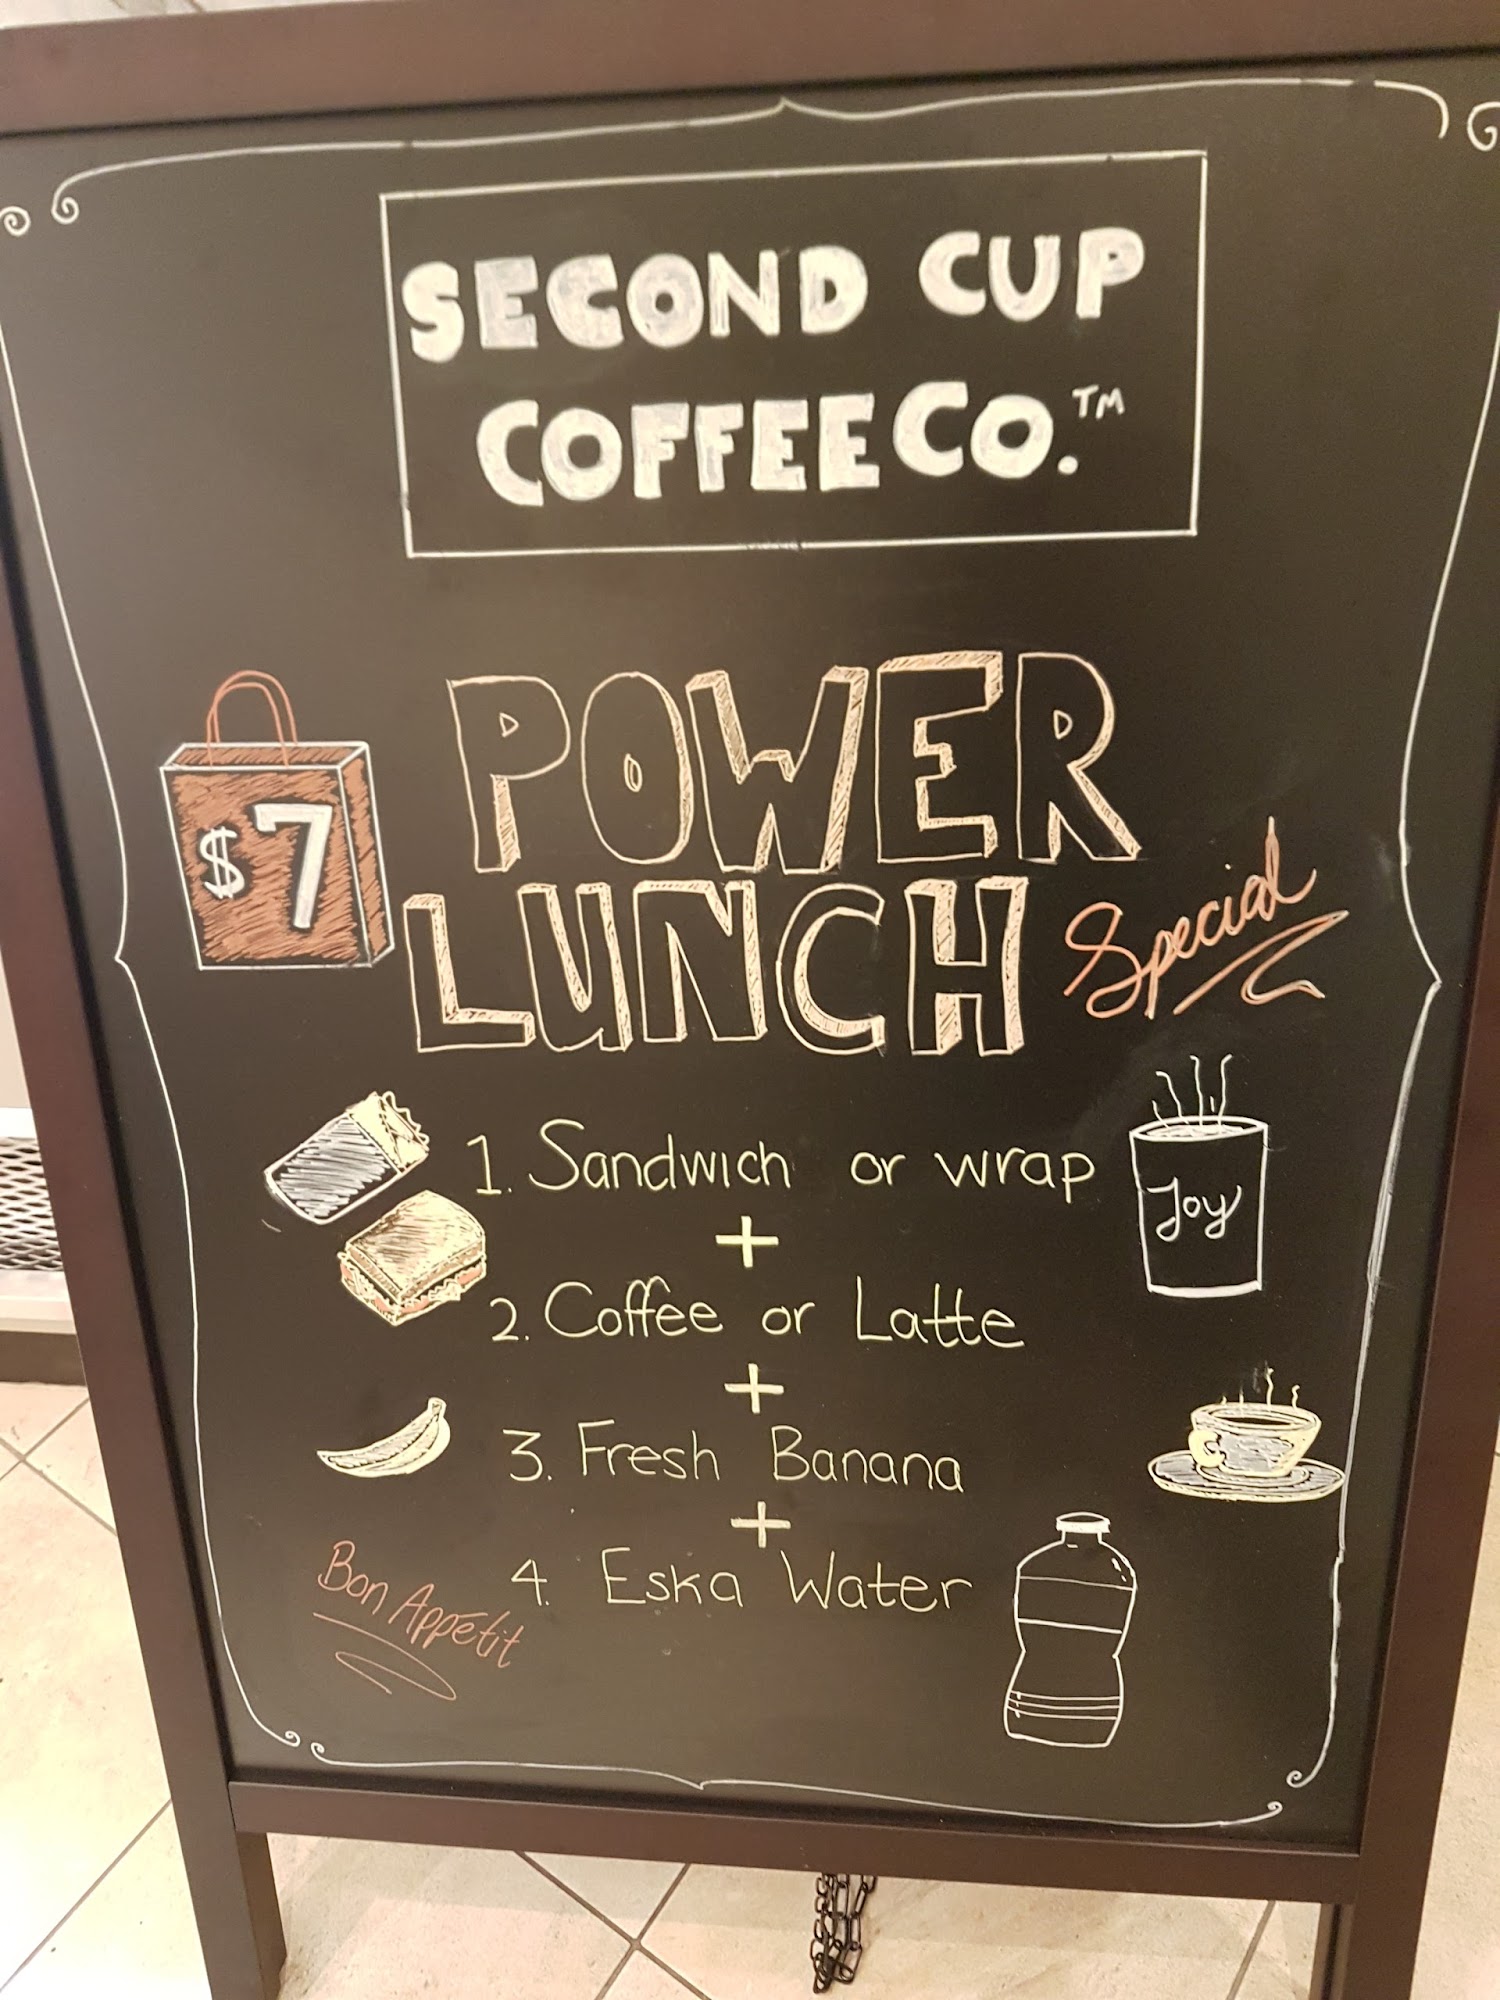 SECOND CUP
COFFEE CO.™
$7
POWER
LUNCH
Special
1. Sandwich or wrap
Joy
+
2. Coffee or Latte
+
3. Fresh Banana
+
4. Eska Water
Bon Appétit